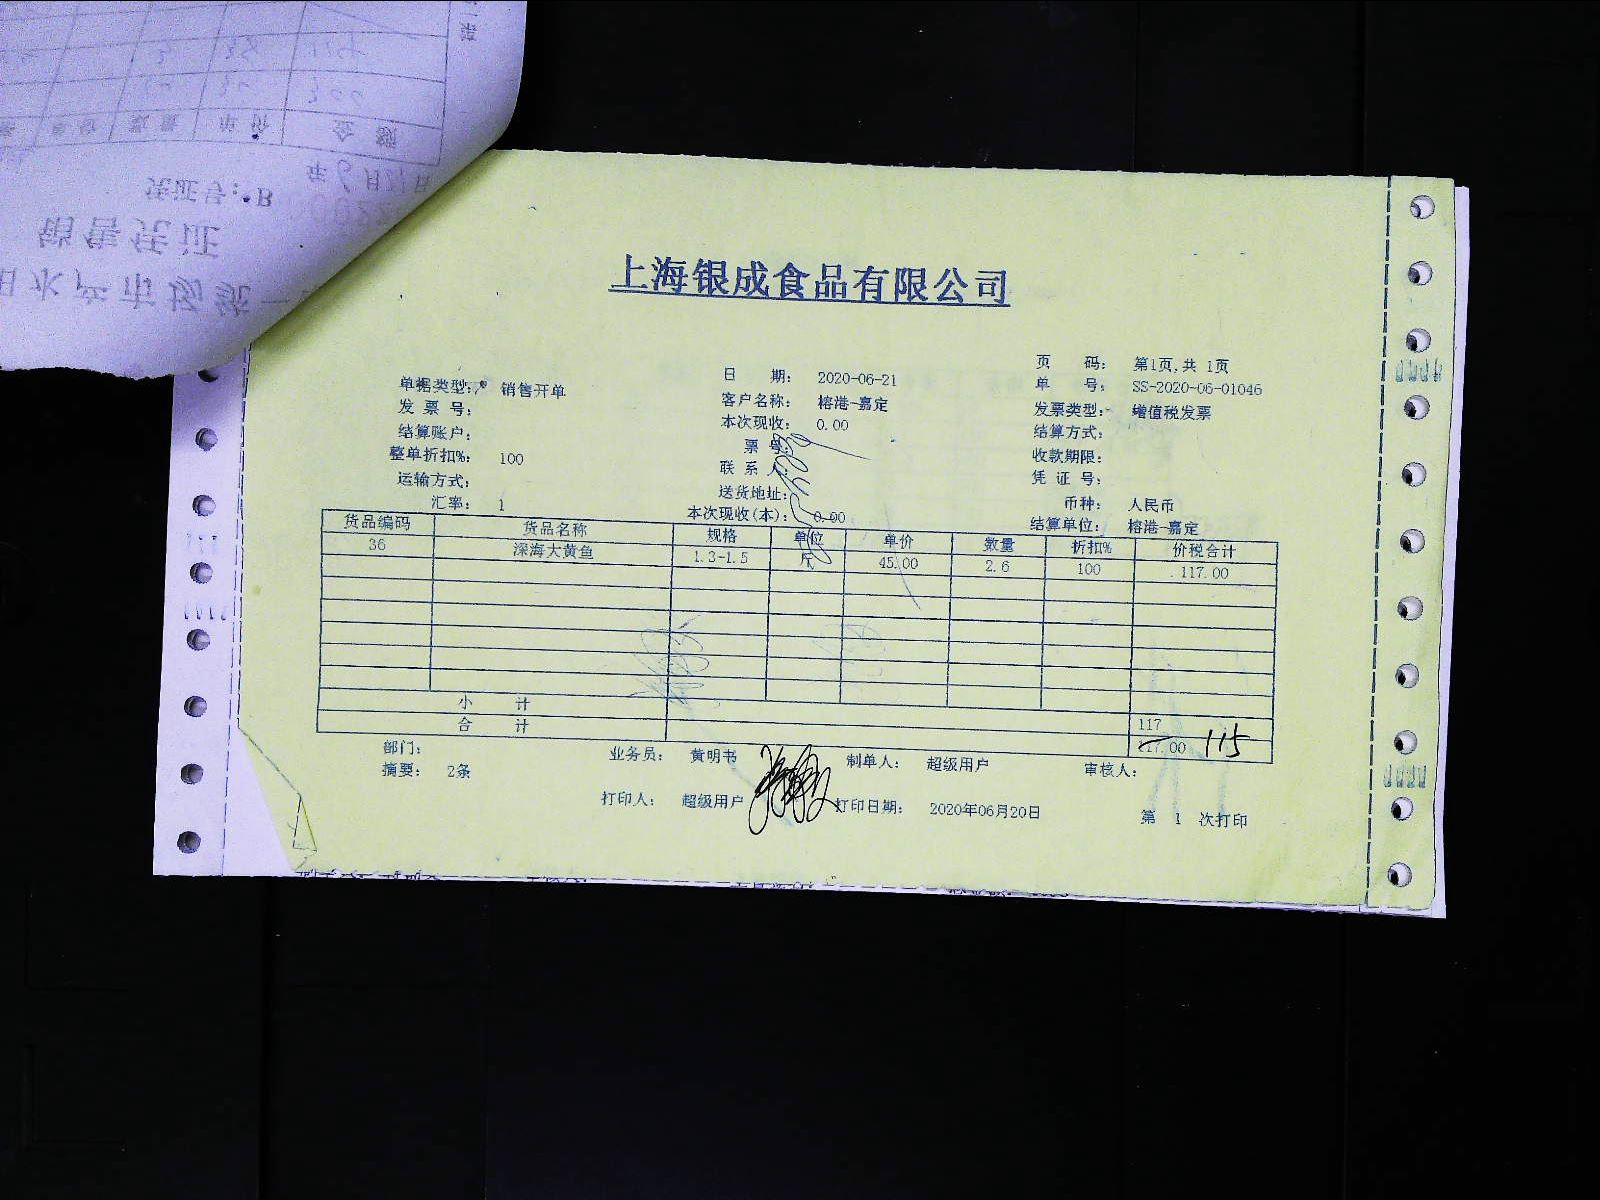 上海银成食品有限公司
页 码： 第1页,共 1页
单据类型： 销售开单 日 期： 2020-06-21 单 号： SS-2020-06-01046
发票号： 客户名称： 榕港-嘉定 发票类型： 增值税发票
结算账户： 本次现收： 0.00 结算方式：
整单折扣%： 100 票号： 收款期限：
运输方式： 联系人： 凭证号：
汇率： 1 送货地址： 币种： 人民币
本次现收(本)： 0.00 结算单位： 榕港-嘉定
货品编码 货品名称 规格 单位 单价 数量 折扣% 价税合计
36 深海大黄鱼 1.3-1.5 斤 45.00 2.6 100 117.00
小 计 117
合 计 117.00 115
部门： 业务员： 黄明书 制单人： 超级用户 审核人：
摘要： 2条
打印人： 超级用户 打印日期： 2020年06月20日 第 1 次打印
销售凭证
凭证号：B
年6月21日
单价
金额